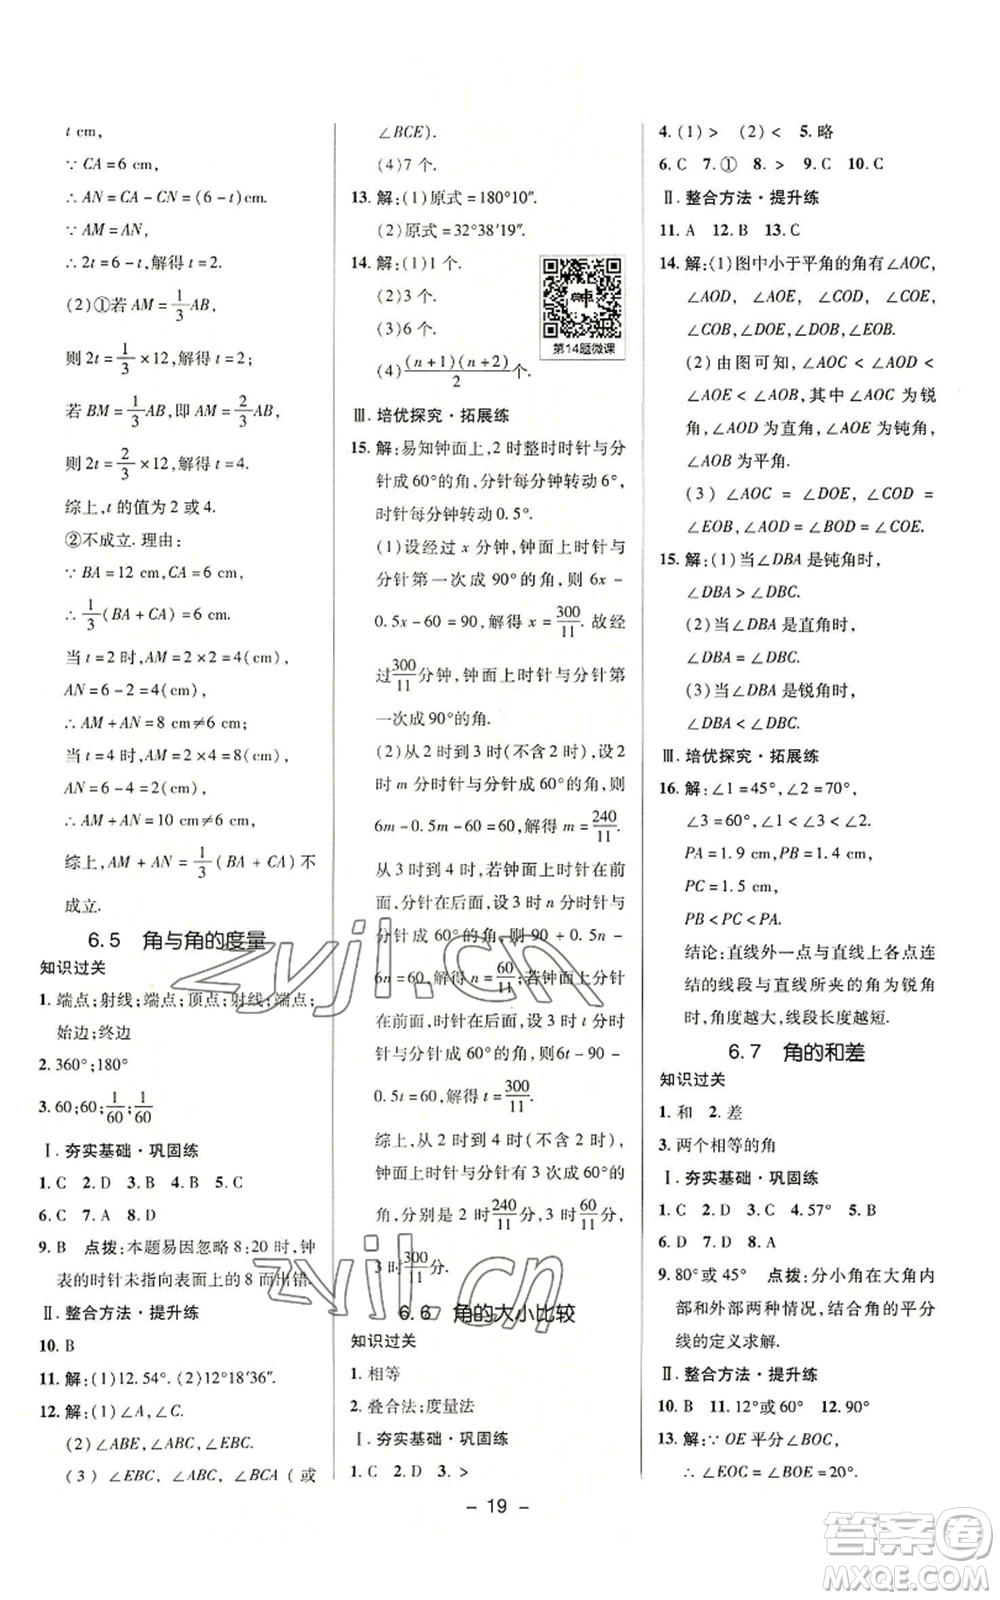 t cm,
∵ CA = 6 cm,
∴ AN = CA − CN = (6 − t) cm.
∵ AM = AN,
∴ 2t = 6 − t, 解得 t = 2.
(2)①若 AM = 1/3 AB,
则 2t = 1/3 × 12, 解得 t = 2;
若 BM = 1/3 AB, 即 AM = 2/3 AB,
则 2t = 2/3 × 12, 解得 t = 4.
综上, t 的值为 2 或 4.
②不成立. 理由:
∵ BA = 12 cm, CA = 6 cm,
∴ 1/3 (BA + CA) = 6 cm.
当 t = 2 时, AM = 2 × 2 = 4(cm),
AN = 6 − 2 = 4(cm),
∴ AM + AN = 8 cm ≠ 6 cm;
当 t = 4 时, AM = 2 × 4 = 8(cm),
AN = 6 − 4 = 2(cm),
∴ AM + AN = 10 cm ≠ 6 cm,
综上, AM + AN = 1/3 (BA + CA) 不
成立.
6.5 角与角的度量
知识过关
1. 端点;射线;端点;顶点;射线;端点;
始边;终边
2. 360°;180°
3. 60;60;1/60;1/60
Ⅰ. 夯实基础·巩固练
1. C 2. D 3. B 4. D 5. C
6. C 7. A 8. D
9. B 点拨:本题易因忽略 8:20 时,钟
表的时针未指向表面上的 8 而出错.
Ⅱ. 整合方法·提升练
10. B
11. 解:(1)12.54°. (2)12°18′36″.
12. 解:(1)∠A, ∠C.
(2)∠ABE, ∠ABC, ∠EBC.
(3) ∠EBC, ∠ABC, ∠BCA (或
∠BCE).
(4)7 个.
13. 解:(1)原式 = 180°10″.
(2)原式 = 32°38′19″.
14. 解:(1)1 个.
(2)3 个.
(3)6 个.
(4)(n+1)(n+2)/2 个.
第14题微课
Ⅲ. 培优探究·拓展练
15. 解:易知钟面上,2 时整时时针与分
针成 60°的角,分针每分钟转动 6°,
时针每分钟转动 0.5°.
(1)设经过 x 分钟,钟面上时针与
分针第一次成 90°的角,则 6x −
0.5x − 60 = 90, 解得 x = 300/11. 故经
过 300/11 分钟,钟面上时针与分针第
一次成 90°的角.
(2)从 2 时到 3 时(不含 2 时),设 2
时 m 分时针与分针成 60°的角,则
6m − 0.5m − 60 = 60, 解得 m = 240/11.
从 3 时到 4 时,若钟面上时针在前
面,分针在后面,设 3 时 n 分时针
与分针成 60°的角,则 90 + 0.5n −
6n = 60, 解得 n = 60/11;若钟面上分针
在前面,时针在后面,设 3 时 t 分时
针与分针成 60°的角,则 6t − 90 −
0.5t = 60, 解得 t = 300/11.
综上,从 2 时到 4 时(不含 2 时),
钟面上时针与分针有 3 次成 60°的
角,分别是 2 时 240/11 分,3 时 60/11 分,
3 时 300/11 分.
6.6 角的大小比较
知识过关
1. 相等
2. 叠合法;度量法
Ⅰ. 夯实基础·巩固练
1. C 2. D 3. >
4. (1) > (2) < 5. 略
6. C 7. ① 8. > 9. C 10. C
Ⅱ. 整合方法·提升练
11. A 12. B 13. C
14. 解:(1)图中小于平角的角有∠AOC,
∠AOD, ∠AOE, ∠COD, ∠COE,
∠COB, ∠DOE, ∠DOB, ∠EOB.
(2) 由图可知, ∠AOC < ∠AOD
< ∠AOE < ∠AOB, 其中∠AOC 为锐
角, ∠AOD 为直角, ∠AOE 为钝角,
∠AOB 为平角.
(3) ∠AOC = ∠DOE, ∠COD =
∠EOB, ∠AOD = ∠BOD = ∠COE.
15. 解:(1)当∠DBA 是钝角时,
∠DBA > ∠DBC.
(2)当∠DBA 是直角时,
∠DBA = ∠DBC.
(3)当∠DBA 是锐角时,
∠DBA < ∠DBC.
Ⅲ. 培优探究·拓展练
16. 解:∠1 = 45°, ∠2 = 80°,
∠3 = 60°, ∠1 < ∠3 < ∠2.
PA = 1.9 cm, PB = 1.4 cm,
PC = 1.5 cm,
PB < PC < PA.
结论:直线外一点与直线上各点连
结的线段与直线所夹的角为锐角
时,角度越大,线段长度越短.
6.7 角的和差
知识过关
1. 和 2. 差
3. 两个相等的角
Ⅰ. 夯实基础·巩固练
1. C 2. D 3. C 4. 57° 5. A
6. D 7. D 8. D
9. 80°或 45° 点拨:分小角在大角内
部和外部两种情况,结合角的平分
线的定义求解.
Ⅱ. 整合方法·提升练
10. B 11. 12°或 60° 12. 90°
13. 解:∵ OE 平分∠BOC,
∴ ∠EOC = ∠BOE = 20°.
– 19 –
zyjl.cn
zyjl.cn
答案圈
MXQE.COM